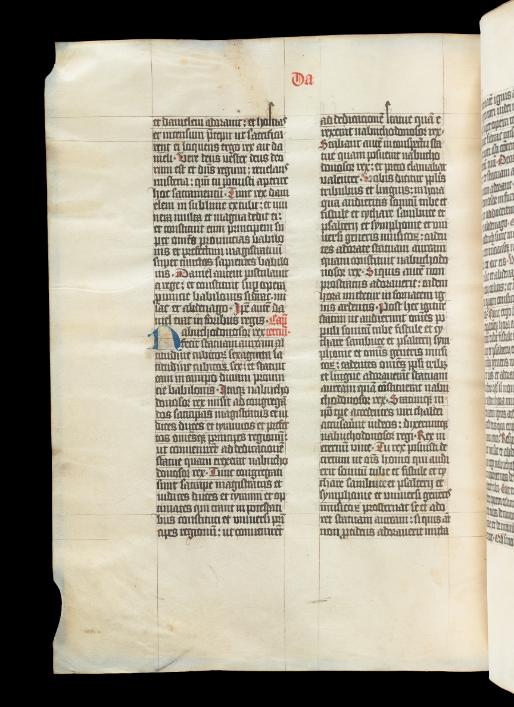 Da
et danielem adorauit : et hostias
et incensum precepit ut sacrifica
rent ei loquens ergo rex ait da
nieli · Vere deus vester deus deo
rum est et dn̄s regum : reuelans
misteria : qm̄ tu potuisti aperire
hoc sacramentū · Tunc rex dani
elem in sublime extulit : et mu
nera multa et magna dedit ei :
et constituit eum principem su
per omēs prouincias babilo
nis et prefectum magistratuū
super cunctos sapientes babilo
nis · Daniel autem postulauit
a rege : et constituit sup̄ opera
prouincie babilonis sidrac · mi
sac et abdenago · Ip̄e aut̄ da
niel erat in foribus regis · Cap̄m
Nabuchodonosor rex tercīu
fecit statuam auream al
titudine cubitoꝝ sexaginta la
titudine cubitoꝝ sex : et statuit
eam in campo duram prouin
cie babilonis · Itaqꝫ nabucho
donosor rex misit ad congregā
dos satrapas magistratus et iu
dices duces et tyrannos et prefec
tos omēsqꝫ principes regionū :
ut conuenirent ad dedicationē
statue quam erexerat nabucho
donosor rex · Tunc congregati
sunt satrape magistratus et
iudices duces et tyranni et op
timates qui erant in potestati
bus constituti et vniuersi prīn
cipes regionū : ut conuenirent
ad dedicationē statue quā e
rexerat nabuchodonosor rex ·
Stabant aut̄ in conspectu sta
tue quam posuerat nabucho
donosor rex : et preco clamabat
valenter · Vobis dicitur p̄plis
tribubus et linguis : in hora
qua audieritis sonitū tube et
fistule et cythare sambuce et
psalterij et symphonie et vni
uersi generis musicoꝝ : caden
tes adorate statuam auream
quam constituit nabuchodo
nosor rex · Siquis aut̄ non
prostratus adorauerit : eadem
hora mittetur in fornacem ig
nis ardentis · Post hec igitur
statim ut audierunt om̄s po
puli sonitū tube fistule et cy
thare sambuce et psalterij sym
phonie et omīs generis musi
coꝝ : cadentes om̄es p̄pli tribꝰ
et lingue adorauerūt statuam
auream quā cōstituerat nabu
chodonosor rex · Statimqꝫ in
ip̄o tp̄re accedentes viri chaldei
accusauerūt iudeos : dixerūtqꝫ
nabuchodonosor regi · Rex in
eternū viue · Tu rex posuisti de
cretum ut om̄is homo qui audi
erit sonitū tube et fistule et cy
thare sambuce et psalterij et
symphonie et vniuersi generis
musicoꝝ prosternat se et ado
ret statuam auream : siquis aūt
non procidens adorauerit mitta